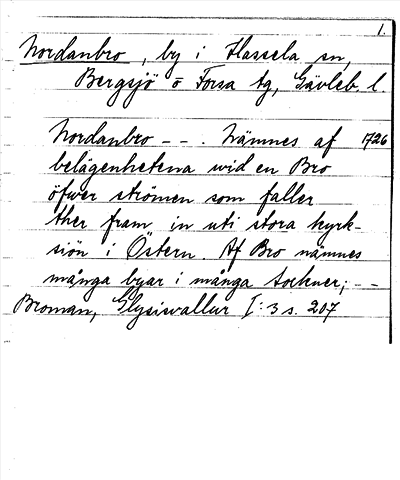 1.
Nordanbro, by i Hassela sn,
Bergsjö o Forsa tg, Gävleb. l.
Nordanbro - - . Nämnes af 1726
belägenhetena wid en Bro
öfwer strömen som faller
ther fram in uti stora kyrk-
siön i Östern. Af Bro nämnes
många byar i många sockner; - -
Broman, Glysisvallur I: 3 s. 207